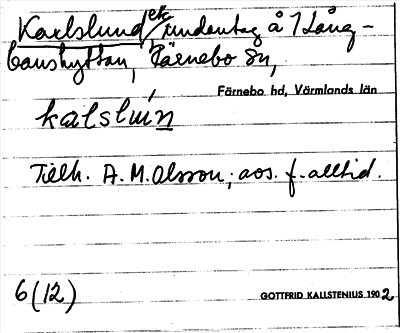 Karlslund ek, undantag å 1 Lång-
banshyttan, Färnebo Sn,
Färnebo hd, Värmlands län
kalslunn
Tillh. A. M. Olsson; aos. f. alltid.
6(12)
GOTTFRID KALLSTENIUS 1902